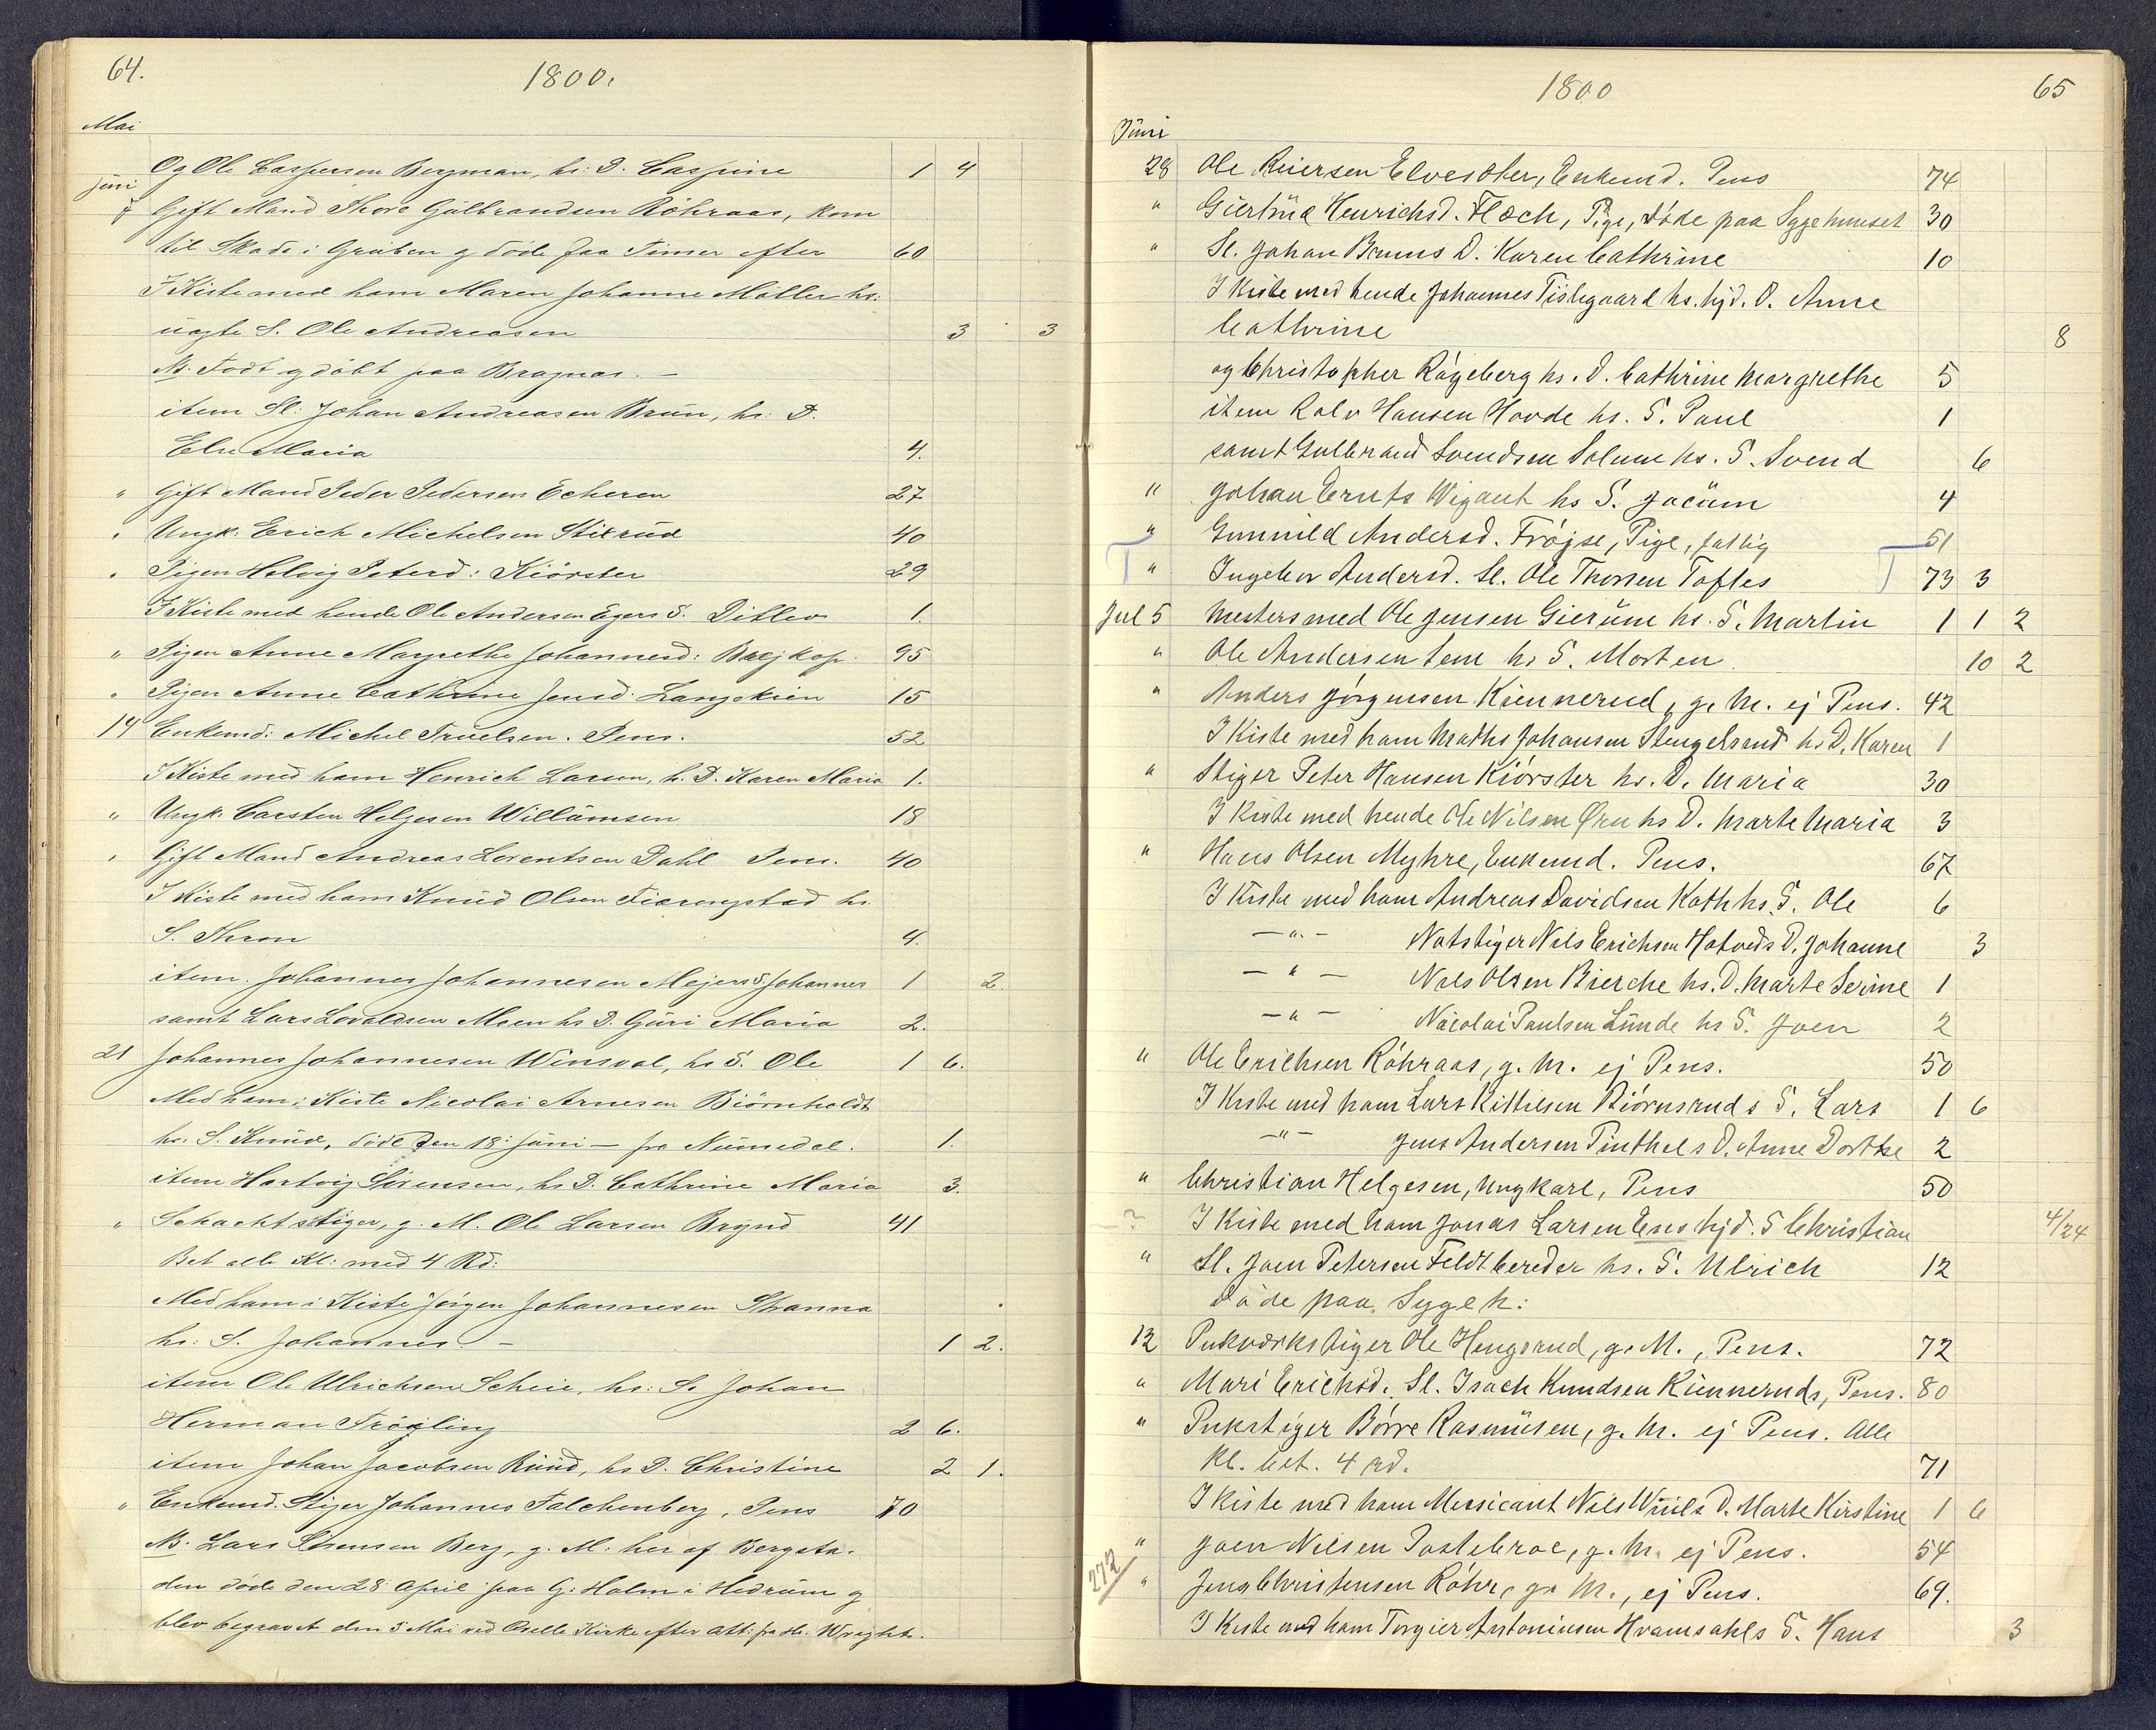 64.
1800.
Mai
Og Ole Caspersen Bergman, hs: D. Caspine 1 4
juni
7 Gift Mand Thore Gulbrandsen Röhraas, kom
til Skade i Gruben og döde faa Timer efter 60
I Kiste med ham Maren Johanne Möller hs:
uægte S. Ole Andreasen 3 3
NB. Födt og döbt paa Bragnæs. —
item Sl: Johan Andreasen Brun, hs: D.
Else Maria 4.
" Gift Mand Peder Pedersen Echeren 27
" Ungk: Erich Michelsen Stixrud 40
" Pigen Helvig Petersd: Kiörster 29
I Kiste med hende Ole Andersen Egers S. Ditlev 1.
" Pigen Anne Margrethe Johannesd: Brejkop 95
" Pigen Anne Cathrine Jensd. Langskien 15
14 Enkemd: Michel Truelsen. Pens. 52
I Kiste med ham Henrich Larsen, h. D. Karen Maria 1.
" Ungk: Carsten Helgesen Willumsen 18
" Gift Mand Andreas Lorentsen Dahl Pens. 40
I Kiste med ham Knud Olsen Fiarengstad hs.
S. Thron 4.
item. Johannes Johannesen Mejers S. Johannes 1 2.
samt Lars Lovaldsen Moen hs D. Guri Maria 2.
21 Johannes Johannesen Winsvol, hs S. Ole 1 6.
Med ham i Kiste Nicolai Arnesen Biörnholdt
hs. S. Knud, döde den 18: juni — fra Numedal. 1.
item Hartvig Sörensen, hs D. Cathrine Maria 3.
" Schachtstiger, g. M. Ole Larsen Brynd 41
Bet alle Kl: med 4 Rd:
Med ham i Kiste Jörgen Johannesen Stranna
hs: S. Johannes — 1 2.
item Ole Ulrichsen Scheie, hs: S. Johan
Herman Tröjling 2 6.
item Johan Jacobsen Ruud, hs D. Christine 2 1.
" Enkemd. Stiger Johannes Falchenberg, Pens 70
NB. Lars Sörensen Berg, g. M. her af Bergsta-
den döde den 28 April paa G: Holm i Hedrum og
blev begravet den 5 Mai ved Kirke efter Att: fra Hr. Wright.
1800
65
Juni
28 Ole Reiersen Elveseter, Enkemd. Pens 74
" Giertrud Henrichsd. Floch, Pige, döde paa Sygehuuset 30
" Sl. Johan Bruuns D. Karen Cathrine 10
I Kiste med hende Johannes Tislegaard hs. hjd. D. Anne
Cathrine 8
og Christopher Rögeberg hs. D. Cathrine Margrethe 5
item Rolv Hansen Hovde hs. S. Paul 1
samt Gulbrand Svendsen Solum hs. S. Svend 6
" Johan Ernts Wigant hs S. Jocum 4
" Gunnild Andersd. Fröjse, Pige, fattig 51
" Ingebor Andersd. Sl. Ole Thorsen Toftes 73 3
Jul 5 Mestersmed Ole Jensen Gierums hs. S. Martin 1 1 2
" Ole Andersen Lem hs S. Morten. 10 2
" Anders Jörgensen Kiennerud, g. M. ej Pens. 42
I Kiste med ham Mathis Johansen Stengelsrud hs D. Karen 1
" Stiger Peter Hansen Kiörster hs. D. Maria 30
I Kiste med hende Ole Nilsen Ørn hs D. Marte Maria 3
" Hans Olsen Myhre, Enkemd. Pens. 67
I Kiste med ham Andreas Davidsen Koth hs. S. Ole 6
— " — Natstiger Nils Erichsen Hotveds D. Johanne 3
— " — Nils Olsen Bierche hs. D. Marte Serine 1
— " — Nicolai Paulsen Lunde hs S. Joen 2
" Ole Erichsen Röhraas, g. M. ej Pens. 50
I Kiste med ham Lars Kittilsen Biörnsruds S. Lars 1 6
— " — Jens Andersen Pinthels D. Anne Dorthe 2
" Christian Helgesen, Ungkarl, Pens 50
? I Kiste med ham Jonas Larsen Ens hjd. S Christian 4/24
" Sl. Joen Petersen Feldtbereder hs. S. Ulrich 12
döde paa Sygeh:
12 Pukværkstiger Ole Hengsrud, g. M., Pens. 72
" Mari Erichsd. Sl. Isach Knudsen Kiennerruds, Pens. 80
" Pukstiger Börre Rasmusen, g. M. ej Pens. Alle
Kl. bet. 4 rd. 71
I Kiste med ham Musicant Nils Wiuls D. Marte Kirstine 1 6
" Joen Nilsen Pastebroe, g. M. ej Pens. 54
272
" Jens Christensen Röhr, g. M., ej Pens. 69.
I Kiste med ham Torgier Antoniusen Hvamsahls S. Hans 3